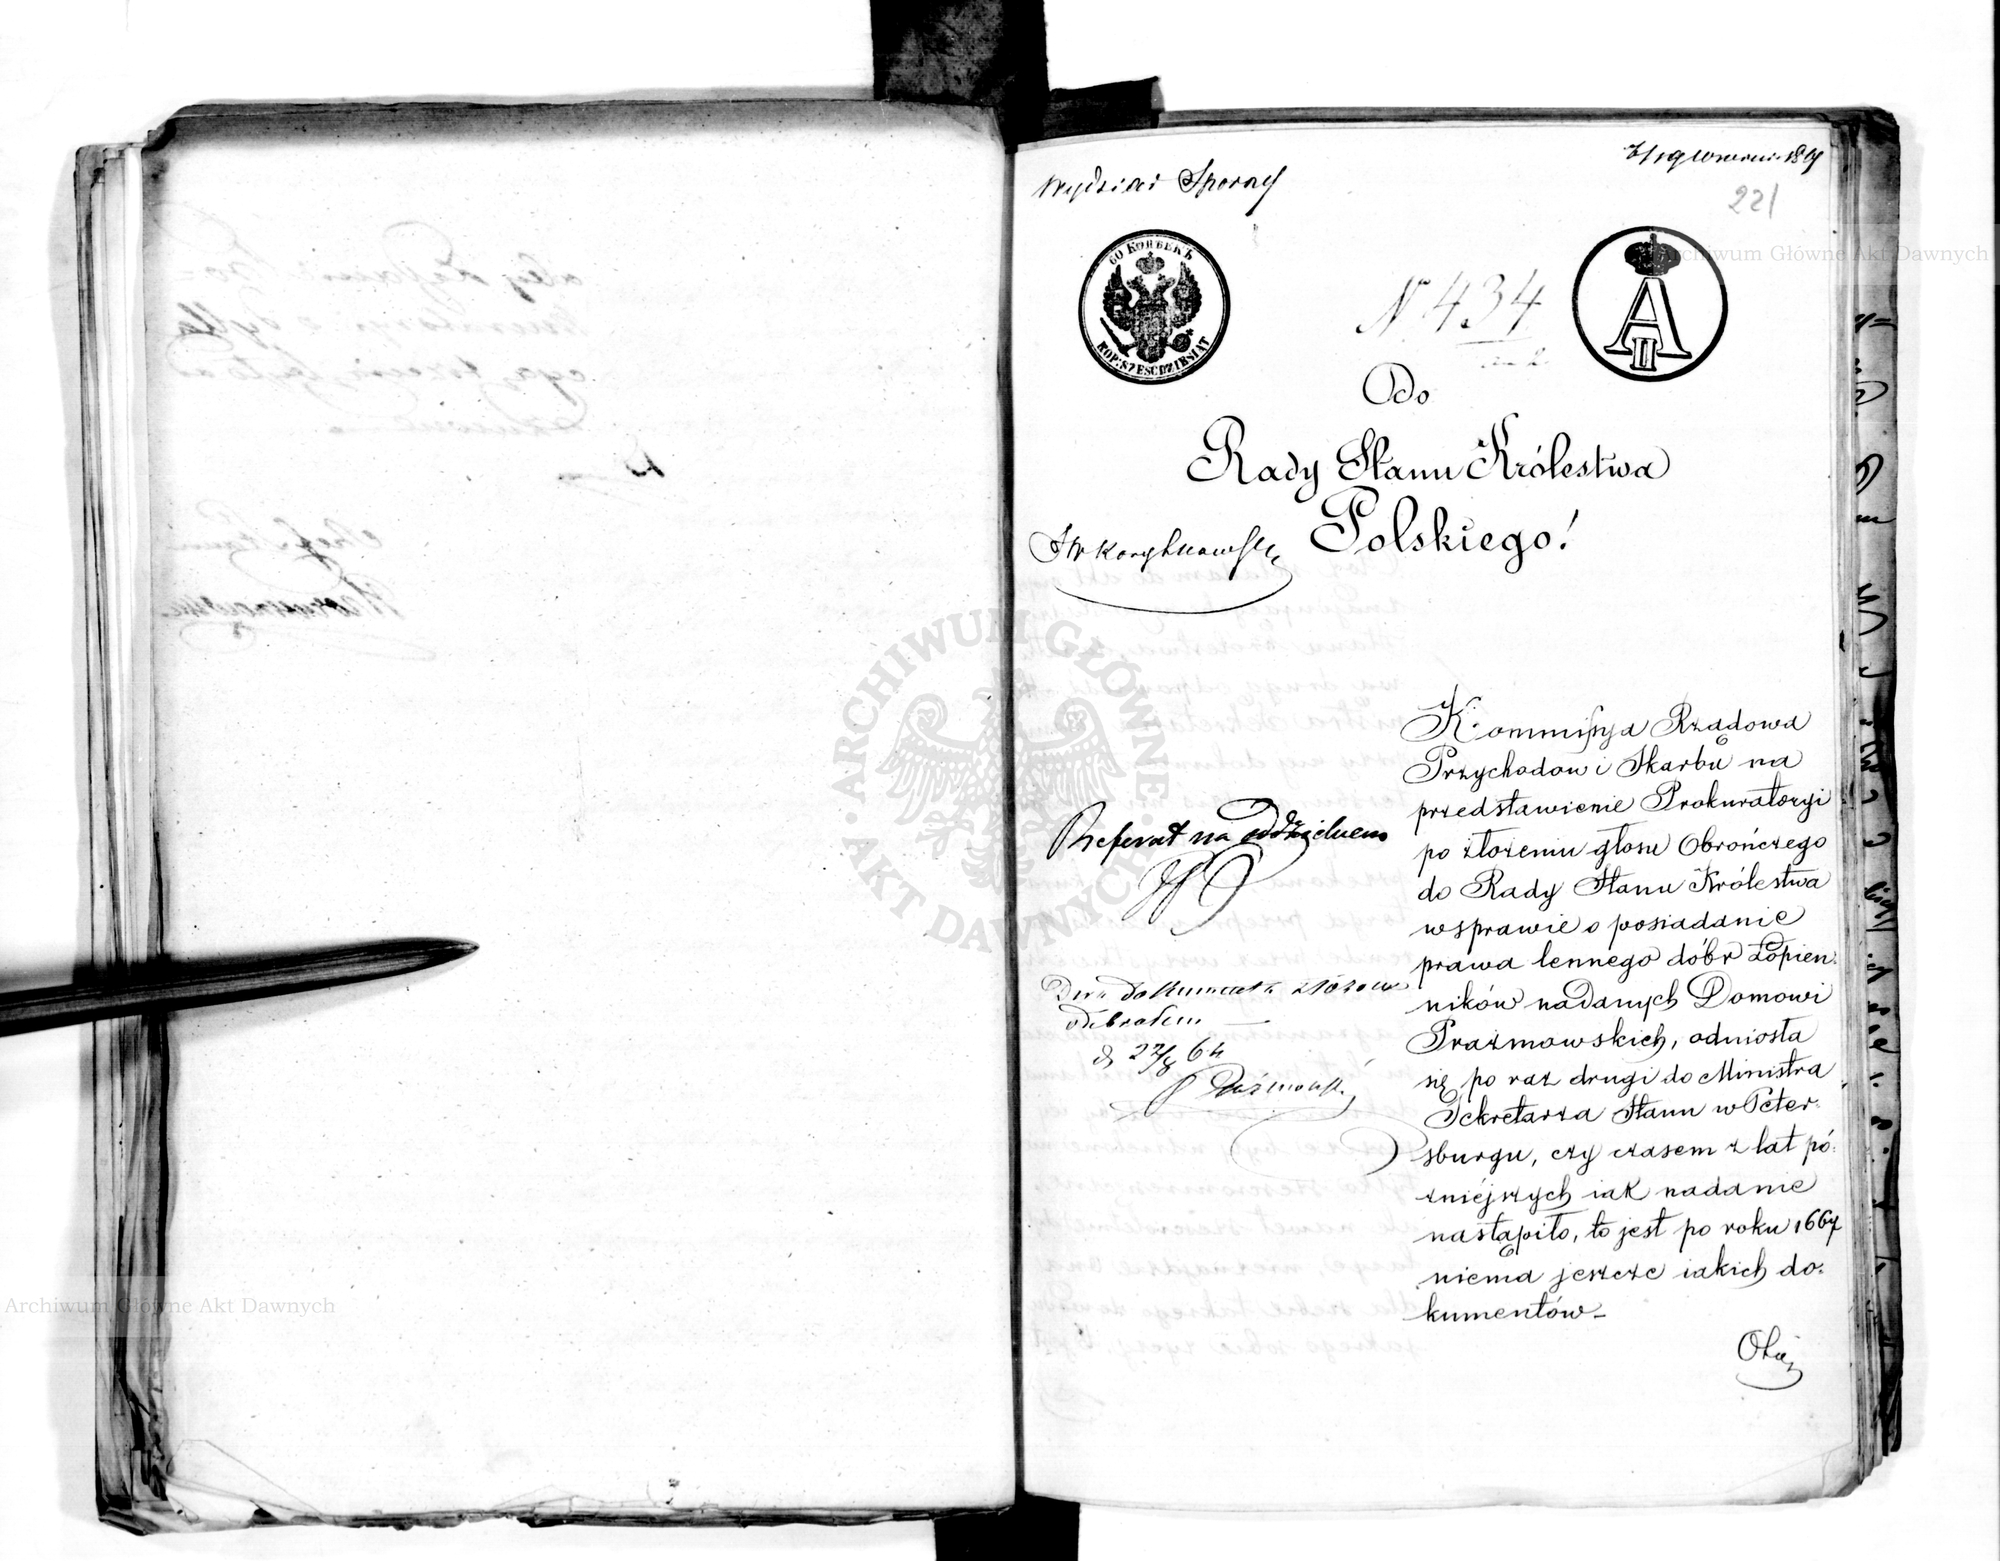 Wydział Sporny
221
60 КОПѢЕКЪ
KOP: SZESCDZIESIĄT
N. 434
A II
Do
Rady Stanu Królestwa
Polskiego!
Kommissya Rządowa
Przychodow i Skarbu na
przedstawienie Prokuratoryi
po złożeniu głosu Obrończego
do Rady Stanu Królestwa
w sprawie o posiadanie
prawa lennego dóbr Łopien:
ników nadanych Domowi
Prażmowskich, odniosła
się po raz drugi do Ministra
Sekretarza Stanu w Peter:
sburgu, czy czasem z lat pó:
zniéjszych iak nadanie
nastąpiło, to jest po roku 1667
niema jeszcze iakich do:
kumentów_
Referat na oddzielnem
Dwa dokumenta złożone
odebrałem
d 22/8 64
Prażmowski
ARCHIWUM GŁÓWNE AKT DAWNYCH
Archiwum Główne Akt Dawnych
Archiwum Główne Akt Dawnych